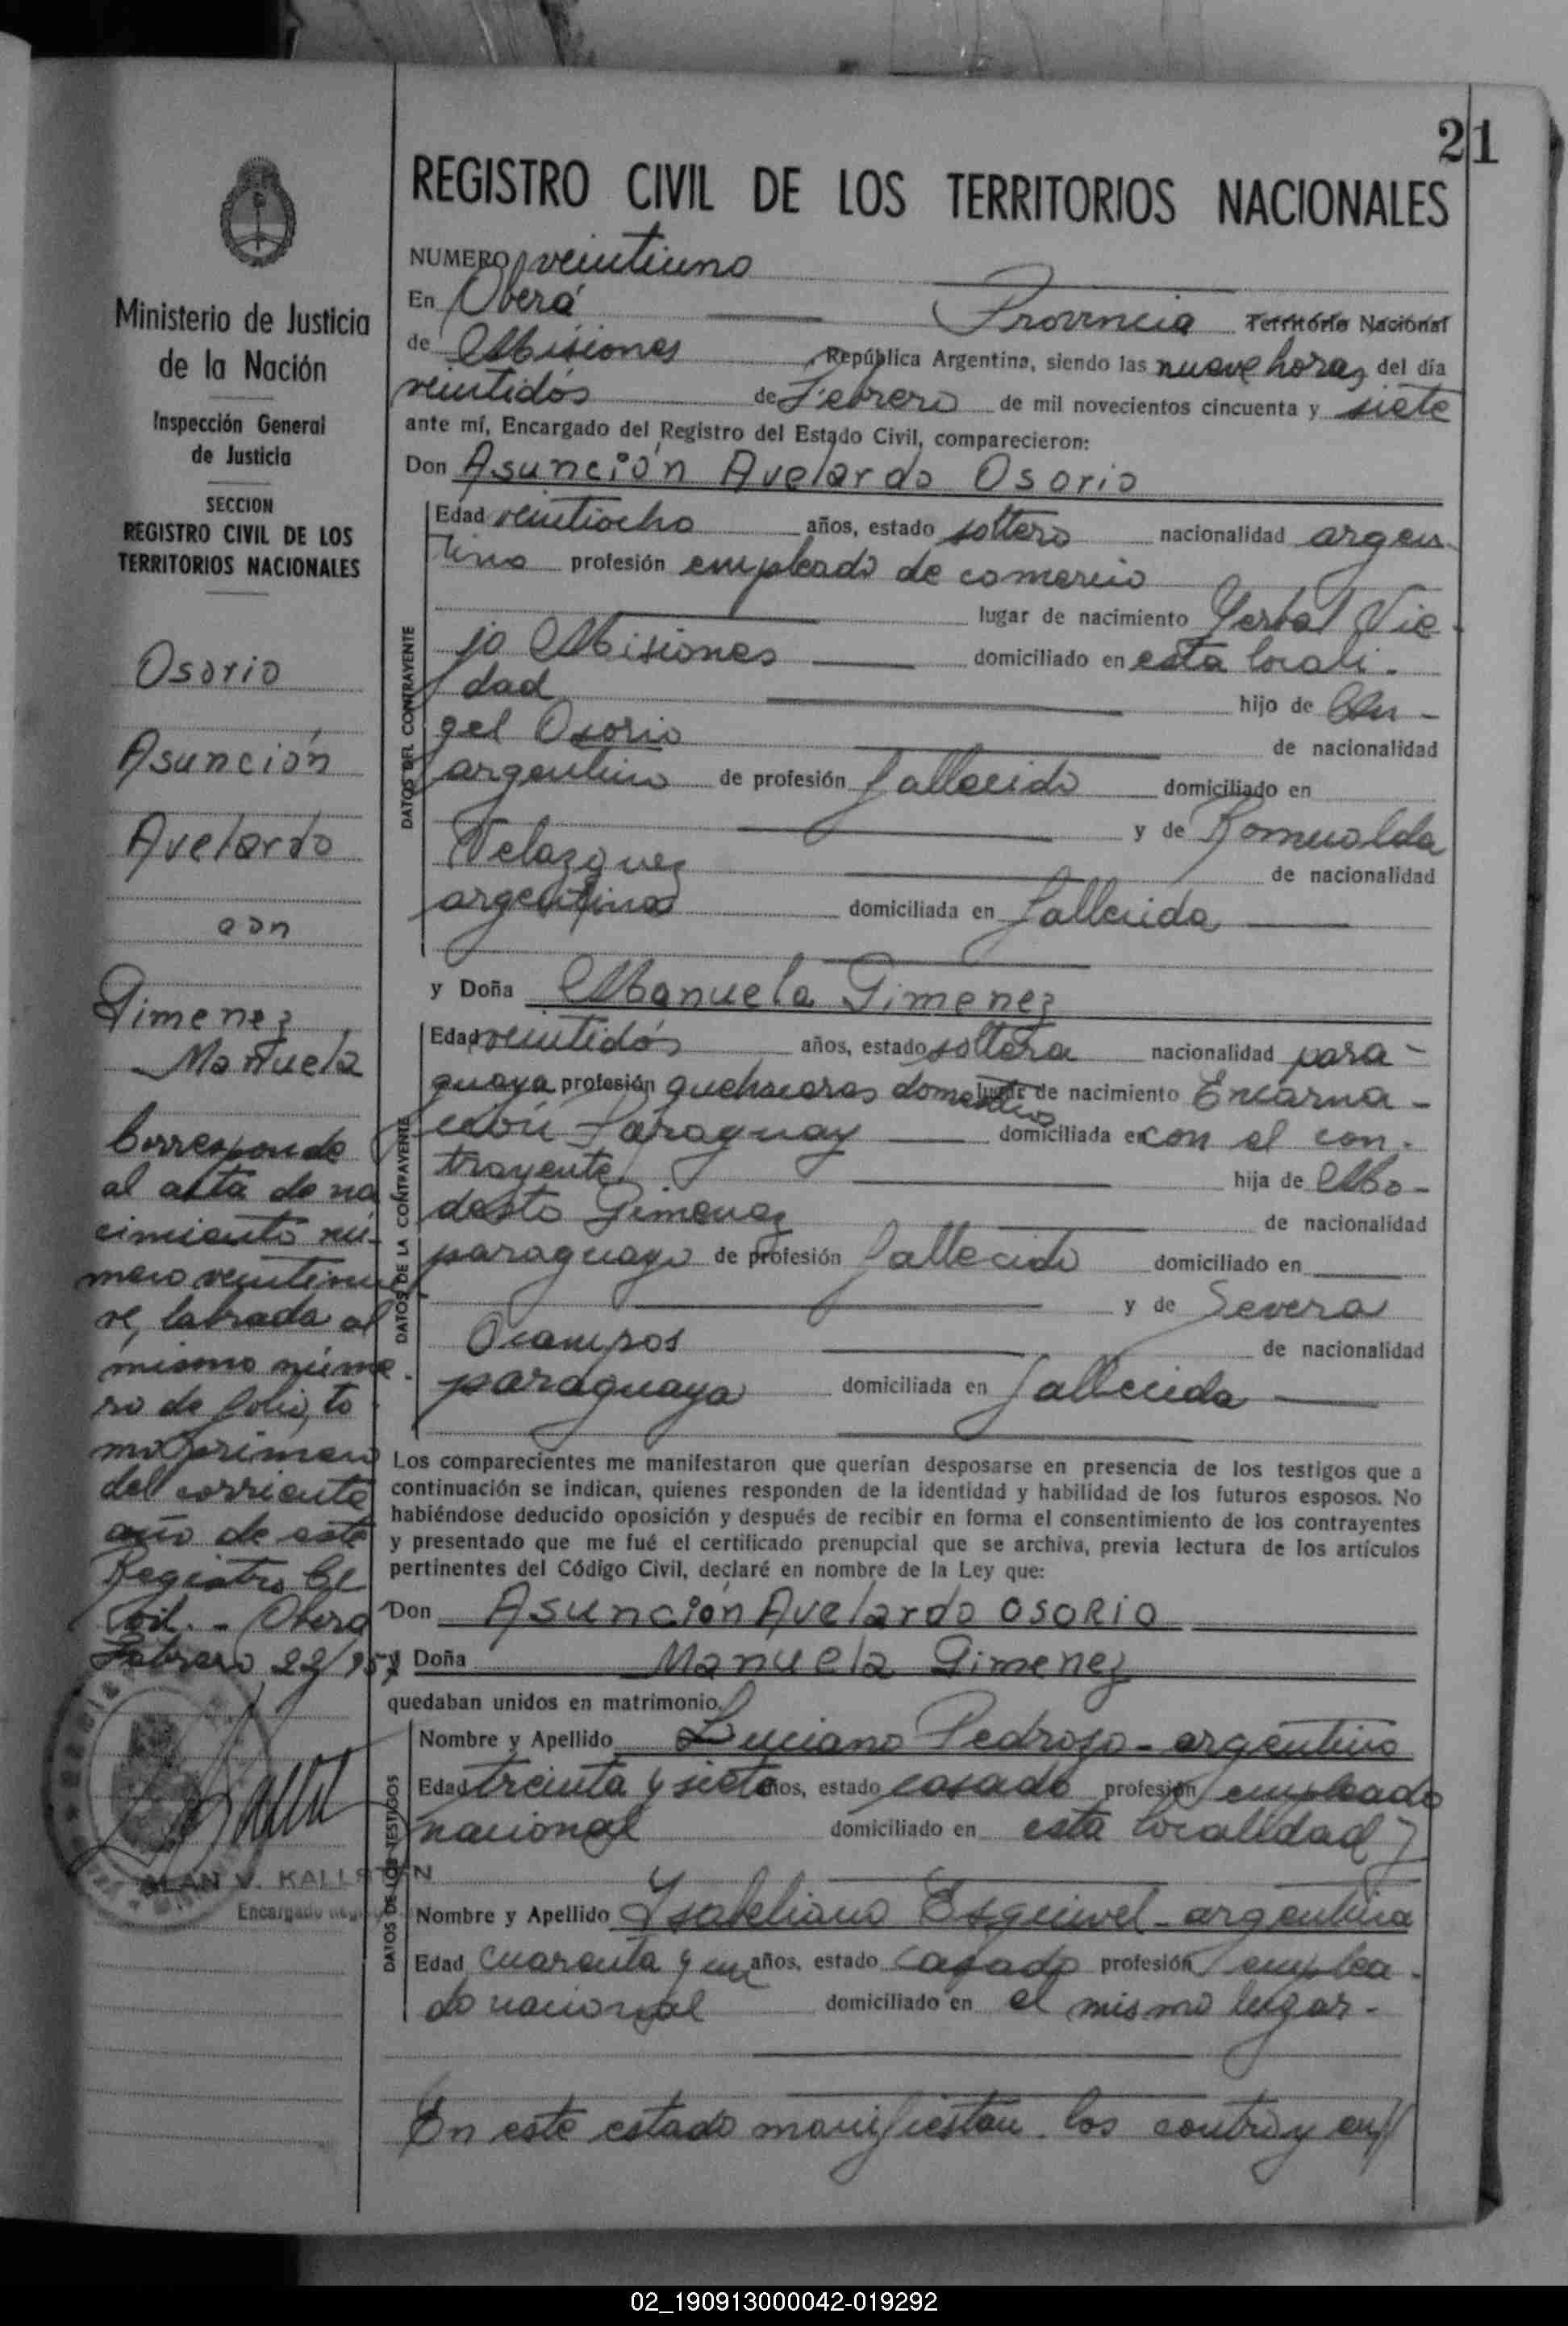 21
REGISTRO CIVIL DE LOS TERRITORIOS NACIONALES
Ministerio de Justicia
de la Nación
Inspección General
de Justicia
SECCION
REGISTRO CIVIL DE LOS
TERRITORIOS NACIONALES
Osorio
Asunción
Avelardo
con
Gimenez
Manuela
Corresponde
al acta de na
cimiento nú-
mero veintinue
ve, labrada al
mismo núme-
ro de folio, to
mo primero
del corriente
año de este
Registro Ci
vil. - Oberá
Febrero 22/957
ALAN V. KALLSTEN
Encargado
NUMERO veintiuno
En Oberá Provincia Territorio Nacional
de Misiones, República Argentina, siendo las nueve horas del día
veintidós de Febrero de mil novecientos cincuenta y siete
ante mí, Encargado del Registro del Estado Civil, comparecieron:
Don Asunción Avelardo Osorio
DATOS DEL CONTRAYENTE
Edad veintiocho años, estado soltero nacionalidad argen-
tino profesión empleado de comercio
lugar de nacimiento Yerbal Vie-
jo Misiones domiciliado en esta locali-
dad hijo de An-
gel Osorio de nacionalidad
argentino de profesión fallecido domiciliado en
y de Romualda
Velazquez de nacionalidad
argentina domiciliada en fallecida
y Doña Manuela Gimenez
DATOS DE LA CONTRAYENTE
Edad veintidós años, estado soltera nacionalidad para-
guaya profesión quehaceres domesticos lugar de nacimiento Encarna-
ción Paraguay domiciliada en con el con-
trayente hija de Mo-
desto Gimenez de nacionalidad
paraguayo de profesión fallecido domiciliado en
y de Severa
Ocampos de nacionalidad
paraguaya domiciliada en fallecida
Los comparecientes me manifestaron que querían desposarse en presencia de los testigos que a
continuación se indican, quienes responden de la identidad y habilidad de los futuros esposos. No
habiéndose deducido oposición y después de recibir en forma el consentimiento de los contrayentes
y presentado que me fué el certificado prenupcial que se archiva, previa lectura de los artículos
pertinentes del Código Civil, declaré en nombre de la Ley que:
Don Asunción Avelardo OSORIO
y Doña Manuela Gimenez
quedaban unidos en matrimonio.
DATOS DE LOS TESTIGOS
Nombre y Apellido Luciano Pedrozo - argentino
Edad treinta y siete años, estado casado profesión empleado
nacional domiciliado en esta localidad y
Nombre y Apellido Ysabeliano Esquivel - argentina
Edad cuarenta y un años, estado casado profesión emplea-
do nacional domiciliado en el mismo lugar.-
En este estado manifiestan los contrayen//
02_190913000042-019292